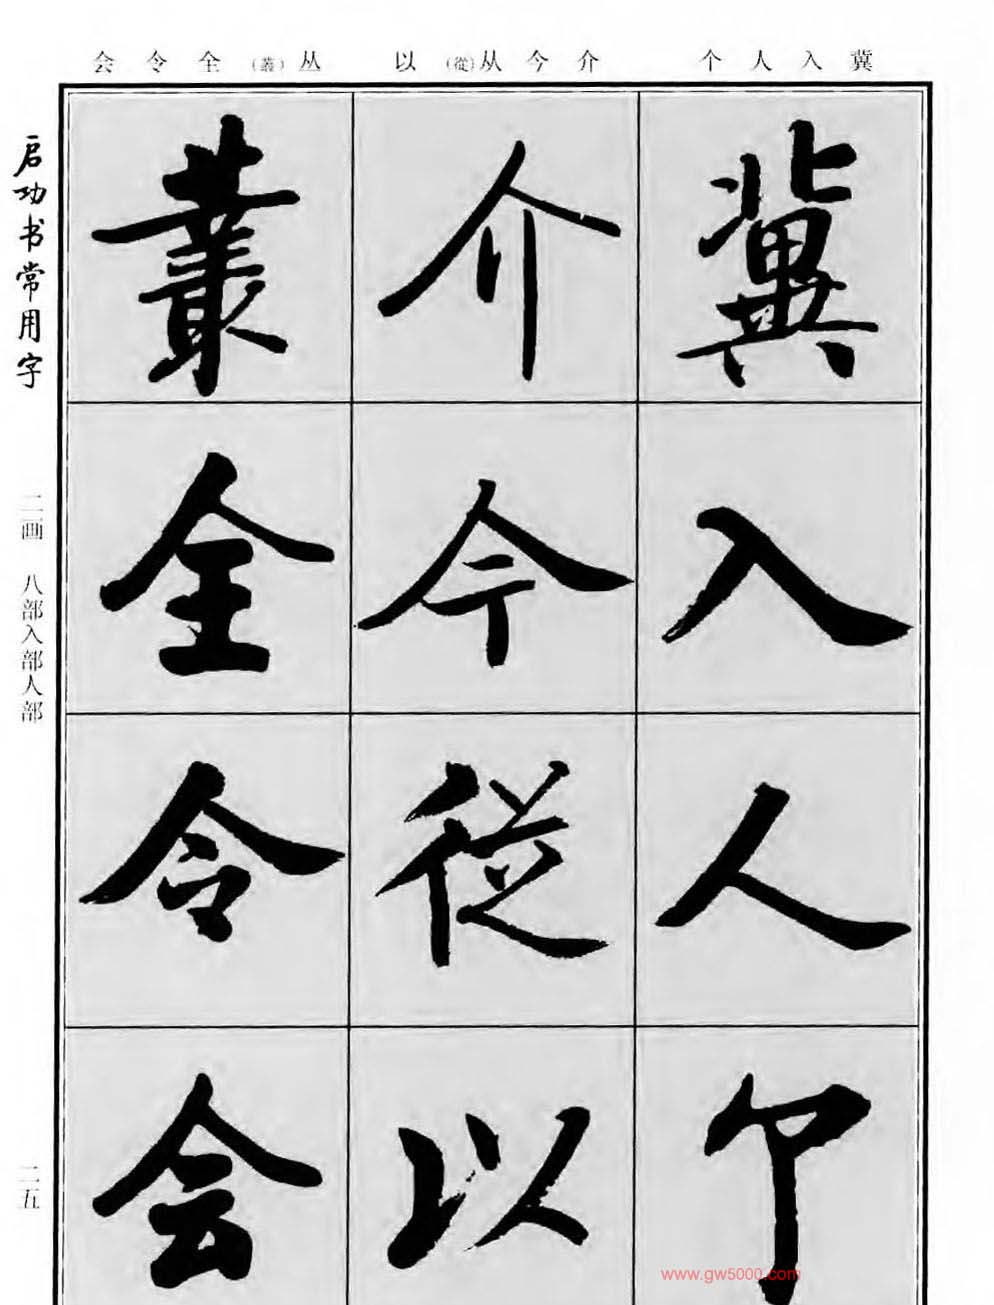 冀入人个
介今从(從)以
丛(叢)全令会
冀
入
人
个
介
今
從
以
叢
全
令
会
启功书常用字
二画 八部入部人部
二五
www.gw5000.com